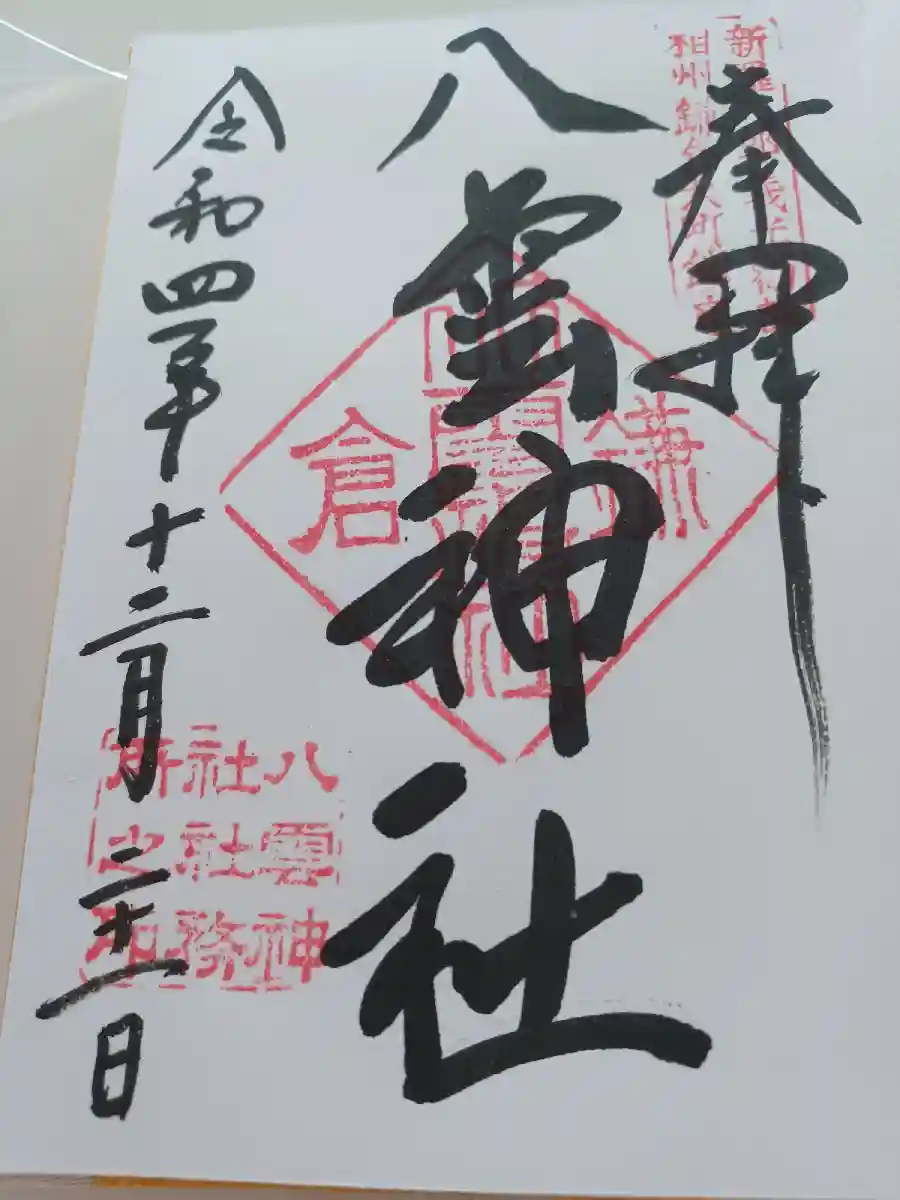 奉拝
八雲神社
鎌倉
令和四年十二月二十一日
八雲神
社社務
所之印